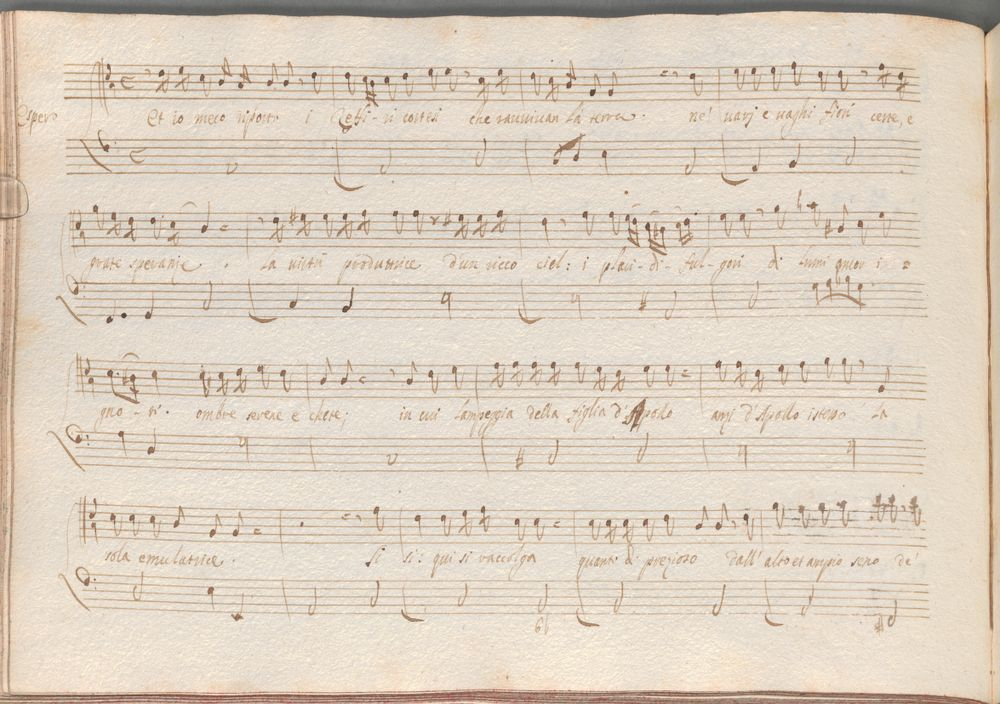 Espero Et io meco riporto i Zeffi-ri cortesi che ravvivan la terra. ne' varj e vaghi fiori certe, e
grate speranze. La virtù produttrice d'un ricco ciel: i placi-di ful-gori di lumi ancor i=
gno-ti. ombre severe e chete, in cui lampeggia della figlia d'Apollo anzi d'Apollo istesso la
sola emulatrice. Si si: qui si raccolga quanto di prezioso dall' alto et ampio seno de'
6